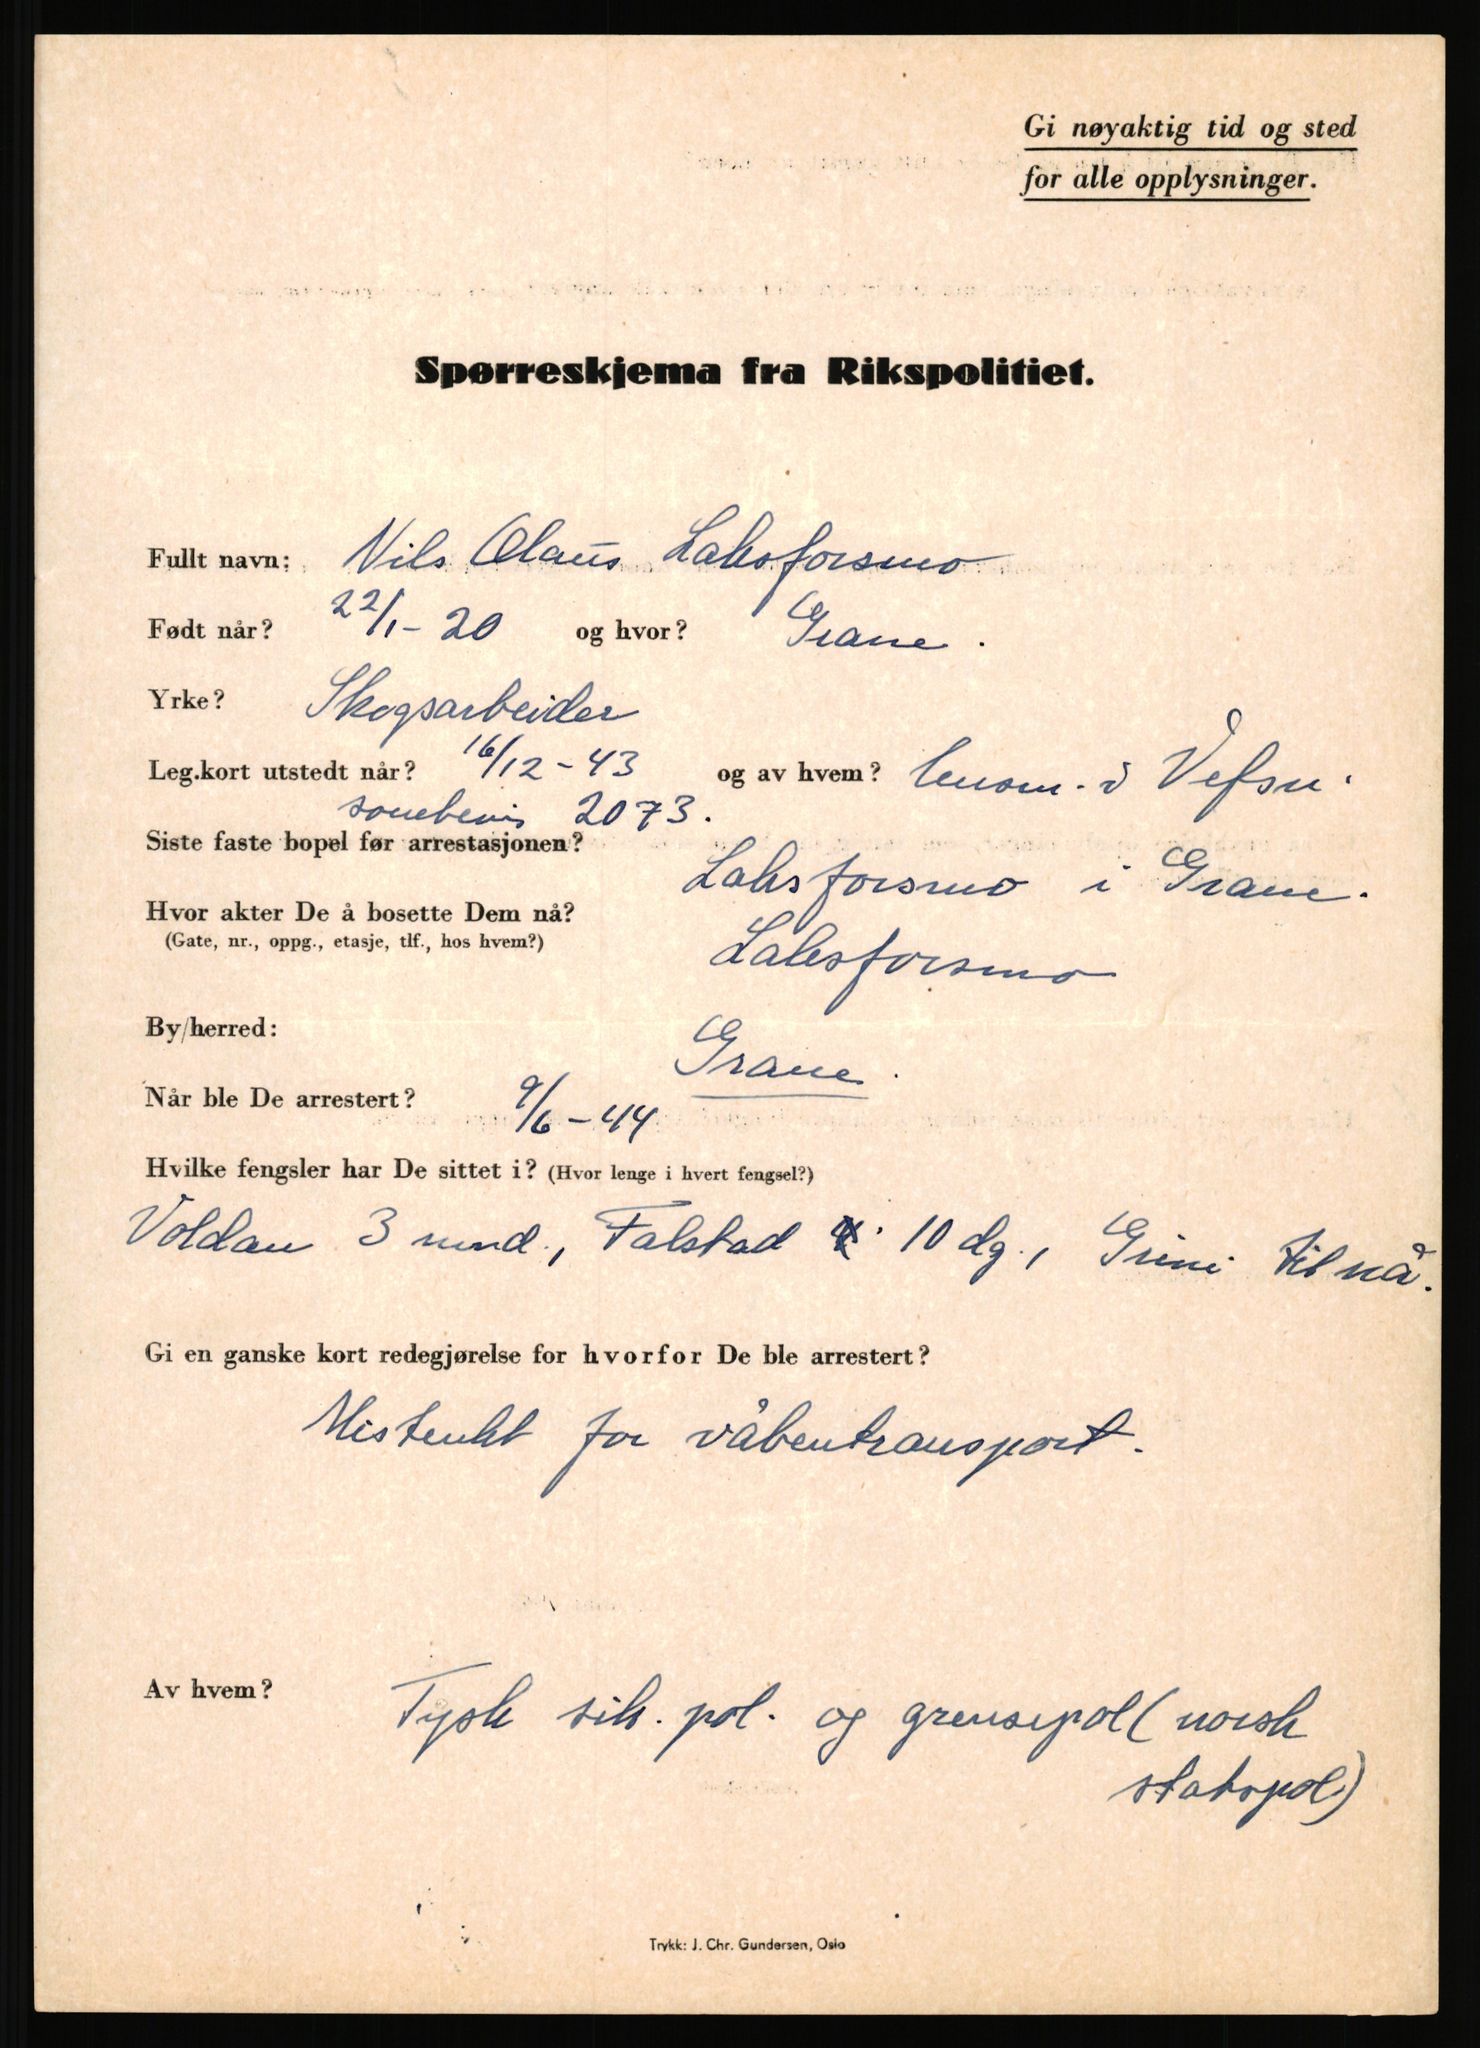 Gi nøyaktig tid og sted
for alle opplysninger.
Spørreskjema fra Rikspolitiet.
Fullt navn: Nils Olaus Laksforsmo
Født når? 22/1-20 og hvor? Grane.
Yrke? Skogsarbeider
Leg.kort utstedt når? 16/12-43 og av hvem? lensm. i Vefsn.
sonebevis 2073.
Siste faste bopel før arrestasjonen? Laksforsmo i Grane.
Hvor akter De å bosette Dem nå?
(Gate, nr., oppg., etasje, tlf., hos hvem?) Laksforsmo
By/herred: Grane.
Når ble De arrestert? 9/6-44
Hvilke fengsler har De sittet i? (Hvor lenge i hvert fengsel?)
Voldan 3 mnd., Falstad 10 dg., Grini til nå.
Gi en ganske kort redegjørelse for hvorfor De ble arrestert?
Mistenkt for våbentransport.
Av hvem? Tysk sik. pol. og grensepol (norsk
statspol)
Trykk: J. Chr. Gundersen, Oslo